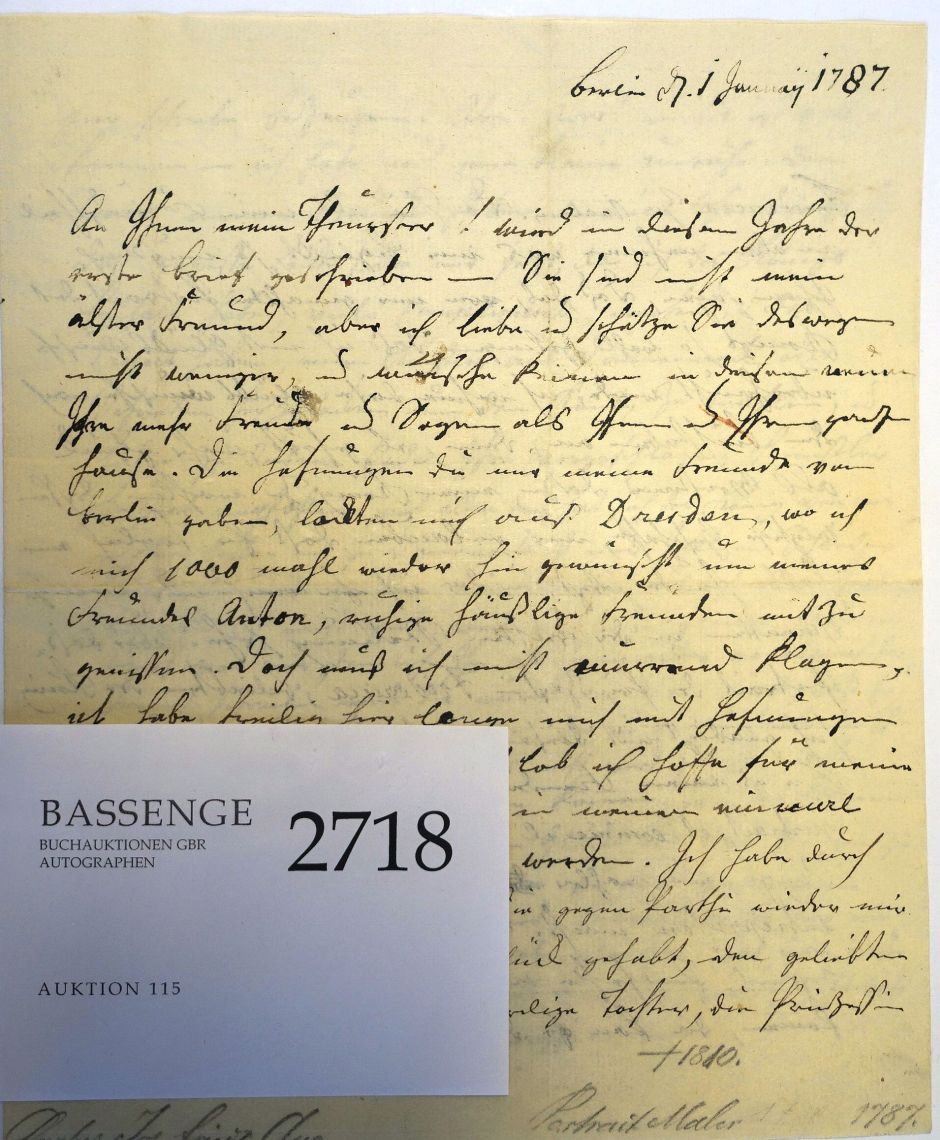 Berlin d. 1 Januarÿ 1787.
An Ihnen mein Theurster! wird in diesem Jahre der
erste brief geschrieben — Sie sind nicht mein
älster Freund, aber ich liebe u schätze Sie deswegen
nicht weniger, u wünsche keinem in diesem neuen
Jahre mehr Freude u Segen als Ihnen u Ihrem ganzen
hause. Die hofnungen die mir meine Freunde von
berlin gaben, lockten mich aus Dresden, wo ich
mich 1000 mahl wieder hin gewünscht um meines
Freundes Anton, ruhige häußlige Freuden mit zu
genissen. Doch muß ich nicht murrend klagen,
ich habe freilig hier lange mich mit hofnungen
lob ich hoffe für meine
in meinem
werden. Ich habe durch
gegen Parthie wieder mir
gehabt, den geliebten
Tochter, die Prinzessin
†1810.
Portrait Maler 1787.
BASSENGE
BUCHAUKTIONEN GBR
AUTOGRAPHEN
2718
AUKTION 115